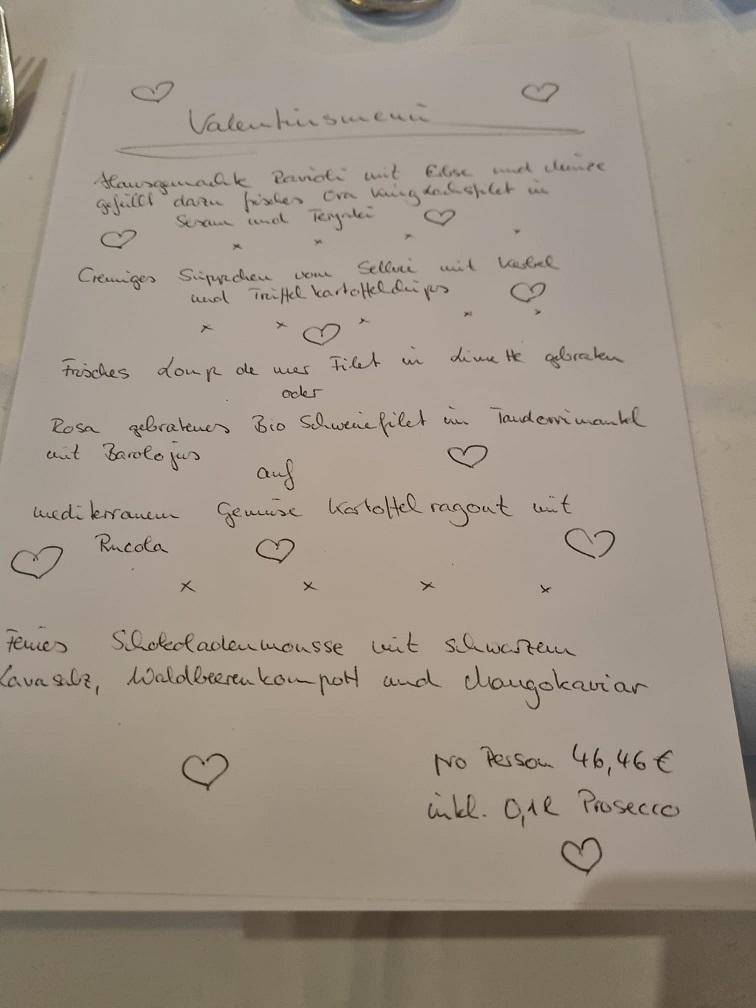 Valentinsmenü
Hausgemachte Ravioli mit Erbse und Minze
gefüllt dazu frisches Ora Kinglachsfilet in
Sesam und Teryaki
Cremiges Süppchen vom Sellerie mit Kerbel
und Trüffelkartoffelchips
Frisches Loup de mer Filet in Limette gebraten
oder
Rosa gebratenes Bio Schweinefilet im Tandoorimantel
mit Barolojus
auf
mediterranem Gemüse Kartoffelragout mit
Rucola
Feines Schokoladenmousse mit schwarzem
Lavasalz, Waldbeerenkompott und Mangokaviar
pro Person 46,46 €
inkl. 0,1l Prosecco